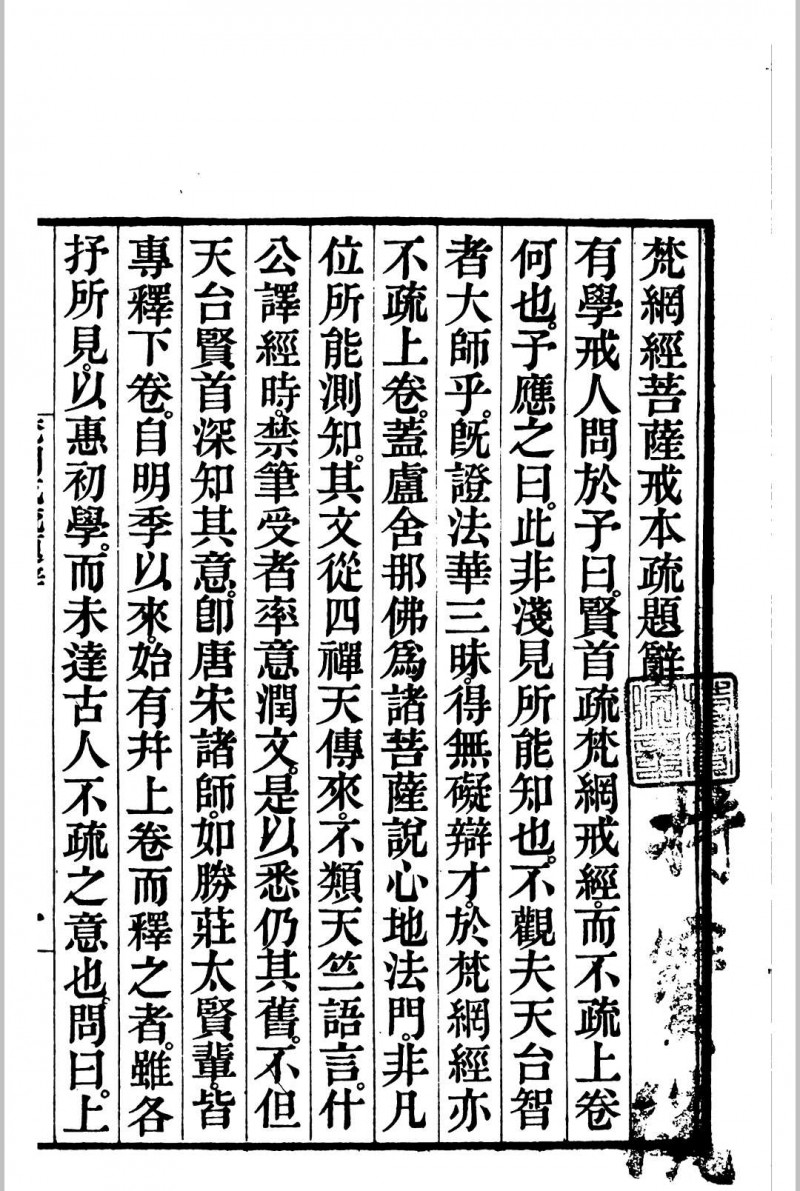 梵網經菩薩戒本疏題辭
有學戒人問於予曰。賢首疏梵網戒經。而不疏上卷
何也。予應之曰。此非淺見所能知也。不觀夫天台智
者大師乎。既證法華三昧。得無礙辯才。於梵網經亦
不疏上卷。蓋盧舍那佛爲諸菩薩說心地法門。非凡
位所能測知。其文從四禪天傳來。不類天竺語言。什
公譯經時。禁筆受者率意潤文。是以悉仍其舊。不但
天台賢首深知其意。卽唐宋諸師。如勝莊太賢輩。皆
專釋下卷。自明季以來。始有幷上卷而釋之者。雖各
抒所見。以惠初學。而未達古人不疏之意也。問曰。上